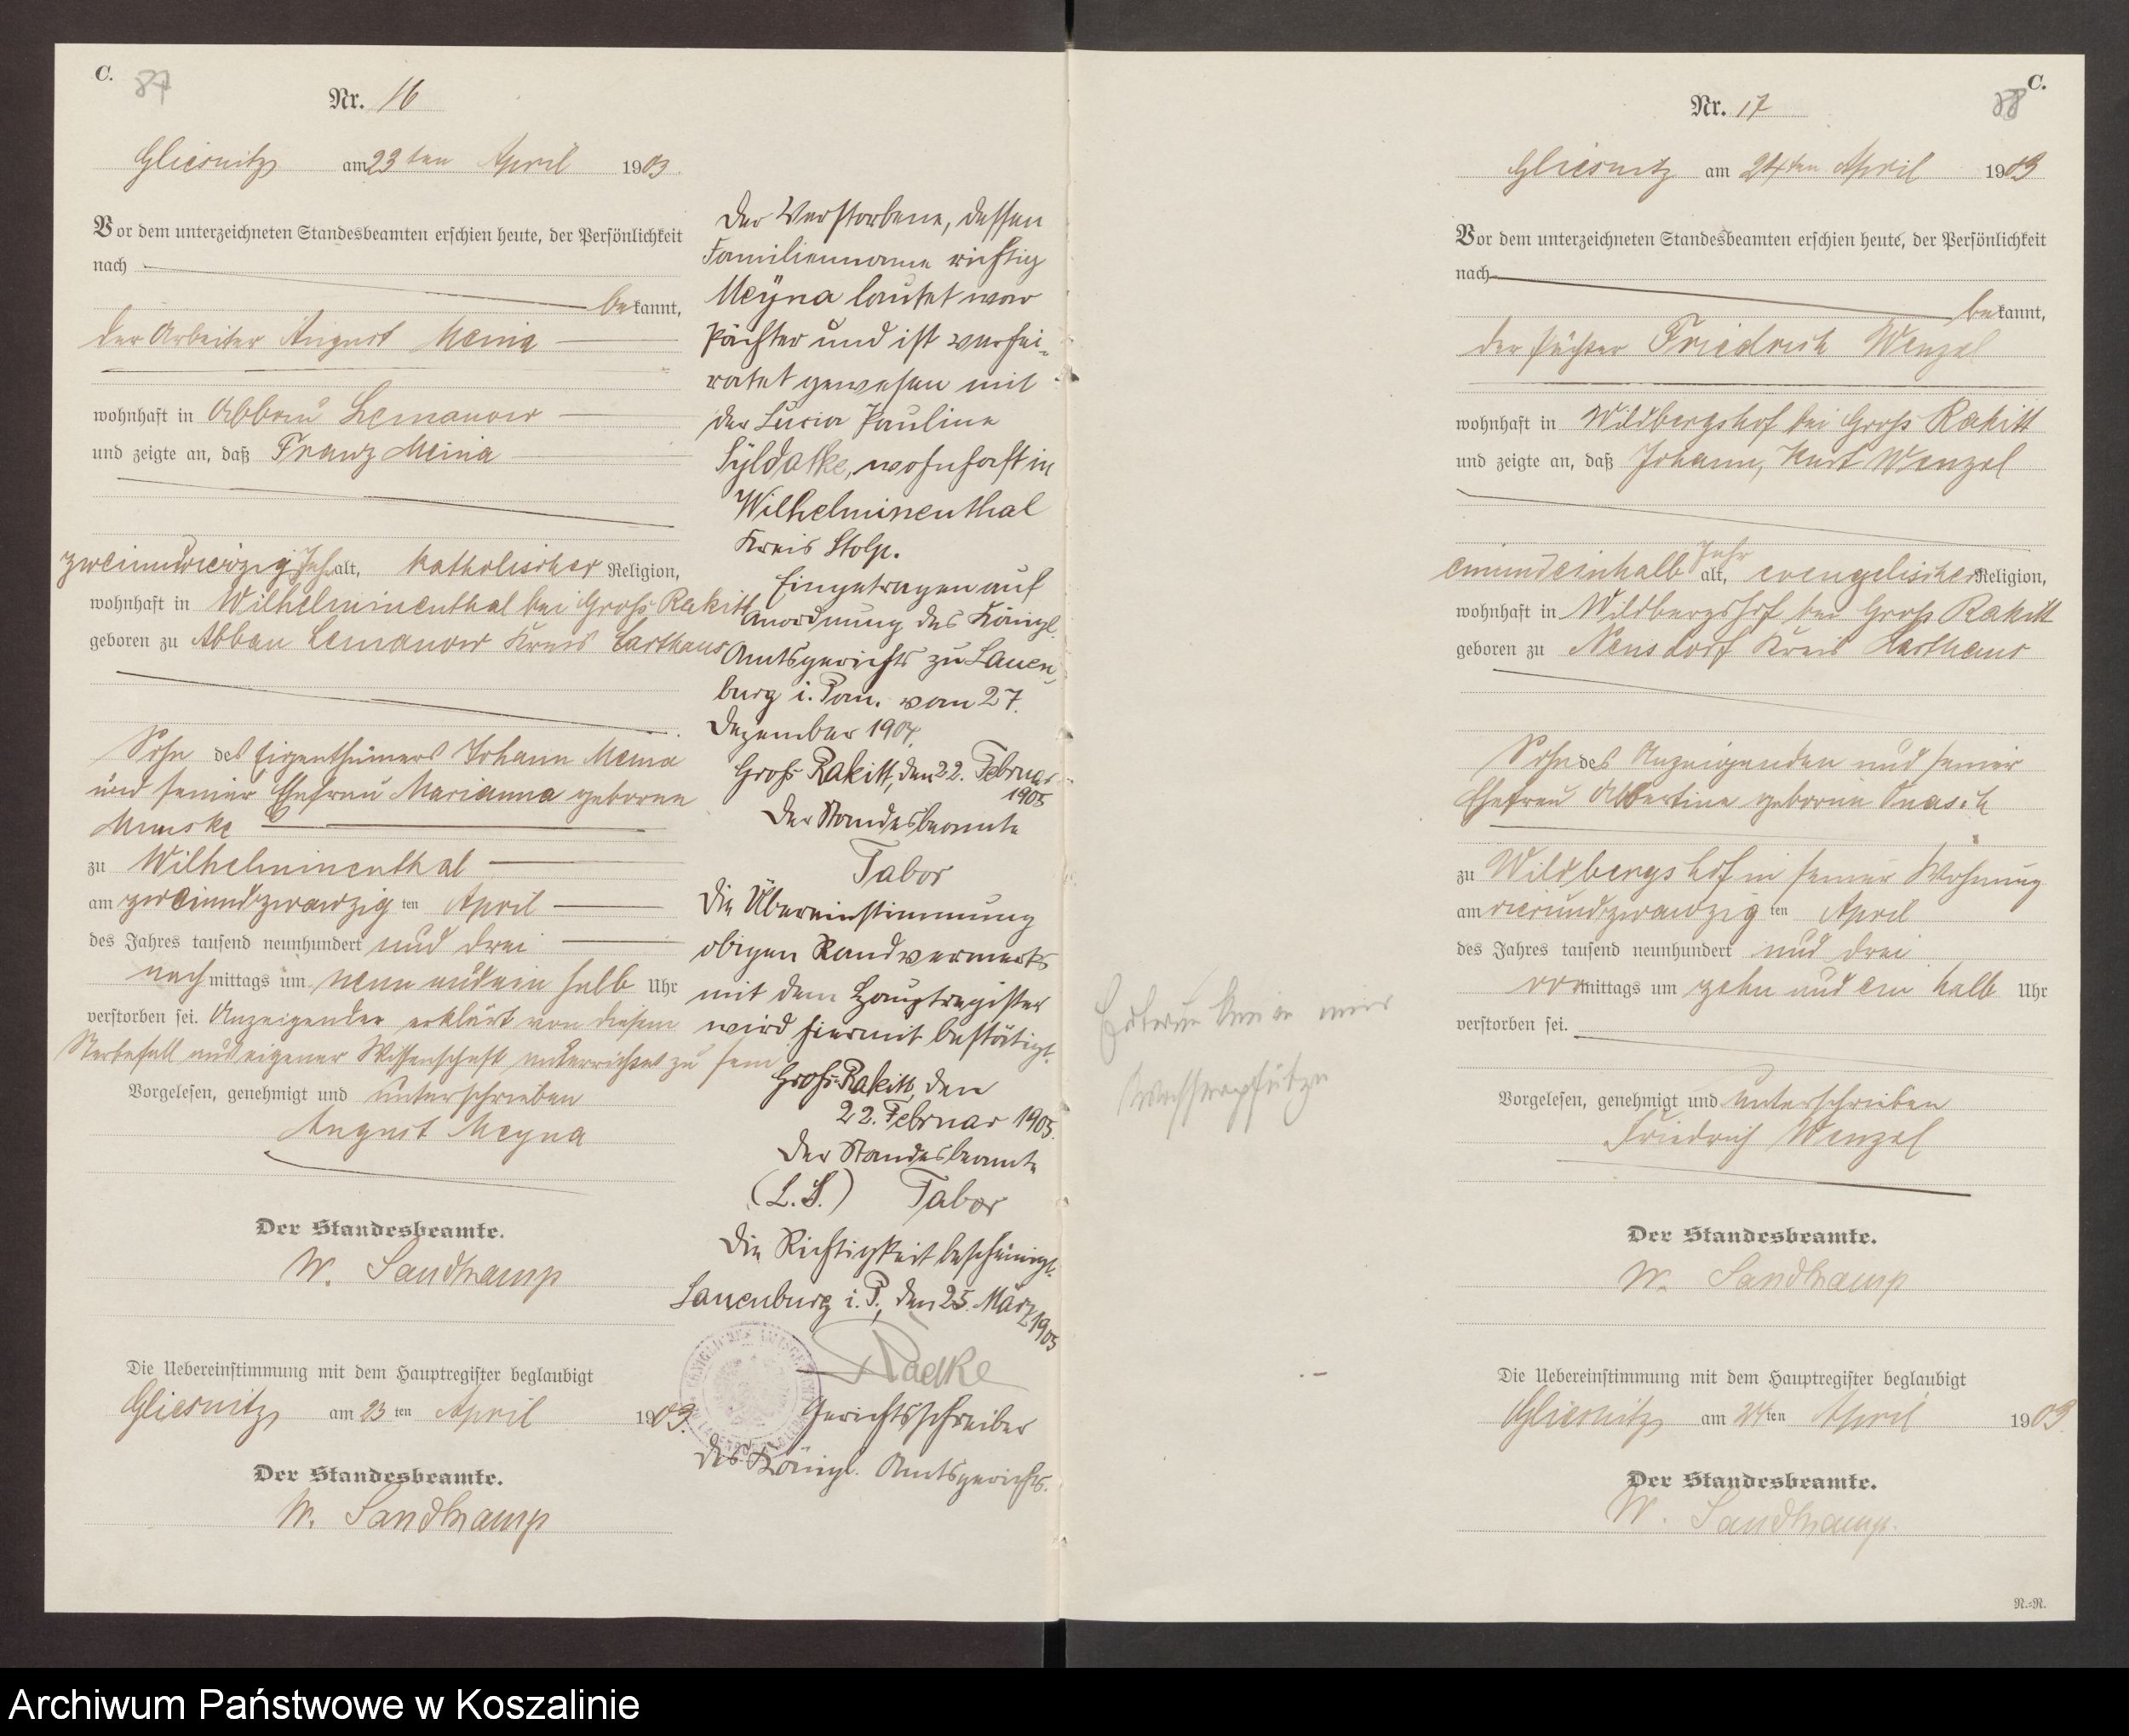 C.
87
Nr. 16
Gliesnitz am 23ten April 1903.
Vor dem unterzeichneten Standesbeamten erschien heute, der Persönlichkeit
nach
bekannt,
der Arbeiter August Meina
wohnhaft in Abbau Lemanow
und zeigte an, daß Franz Meina
zweiundvierzig Jahr alt, katholischer Religion,
wohnhaft in Wilhelminenthal bei Groß Rakitt
geboren zu Abbau Lemanow Kreis Carthaus
Sohn des Eigenthümers Johann Meina
und seiner Ehefrau Marianna geborene
zu Wilhelminenthal
am zweiundzwanzigten April
des Jahres tausend neunhundert und drei
nachmittags um neun und ein halb Uhr
verstorben sei. Anzeigender erklärt von diesem
Sterbefall aus eigener Wissenschaft unterrichtet zu sein
Vorgelesen, genehmigt und unterschrieben
August Meyna
Der Standesbeamte.
W. Sandkamp
Die Uebereinstimmung mit dem Hauptregister beglaubigt
Gliesnitz, am 23ten April 1903.
Der Standesbeamte.
W. Sandkamp
Der Verstorbene, dessen
Familienname richtig
Meyna lautet war
Pächter und ist verhei-
ratet gewesen mit
der Lucia Pauline
Syldatke, wohnhaft in
Wilhelminenthal
Kreis Stolp.
Eingetragen auf
Anordnung des Königl.
Amtsgerichts zu Lauen-
burg i. Pom. vom 27.
Dezember 1904.
Groß Rakitt, den 22. Februar
1905
Der Standesbeamte
Tabor
Die Übereinstimmung
obigen Randvermerks
mit dem Hauptregister
wird hiermit bestätigt.
Groß-Rakitt, den
22. Februar 1905.
Der Standesbeamte
(L.S.) Tabor
Die Richtigkeit bescheinigt.
Lauenburg i. P., den 25. März 1905
Radke
Gerichtsschreiber
des Königl. Amtsgerichts.
C.
88
Nr. 17
Gliesnitz am 24ten April 1903
Vor dem unterzeichneten Standesbeamten erschien heute, der Persönlichkeit
nach
bekannt,
der Pächter Friedrich Wenzel
wohnhaft in Wildbergshof bei Groß Rakitt
und zeigte an, daß Johann, Kurt Wenzel
einundeinhalb Jahr alt, evangelischer Religion,
wohnhaft in Wildbergshof bei Groß Rakitt
geboren zu Kreis Karthaus
Sohn des Anzeigenden und seiner
Ehefrau Albertine geborene
zu Wildbergshof in seiner Wohnung
am vierundzwanzigten April
des Jahres tausend neunhundert und drei
vormittags um zehn und ein halb Uhr
verstorben sei.
Vorgelesen, genehmigt und unterschrieben
Friedrich Wenzel
Der Standesbeamte.
W. Sandkamp
Die Uebereinstimmung mit dem Hauptregister beglaubigt
Gliesnitz, am 24ten April 1903.
Der Standesbeamte.
W. Sandkamp.
in
Wasserpfütze
N.-N.
Archiwum Państwowe w Koszalinie